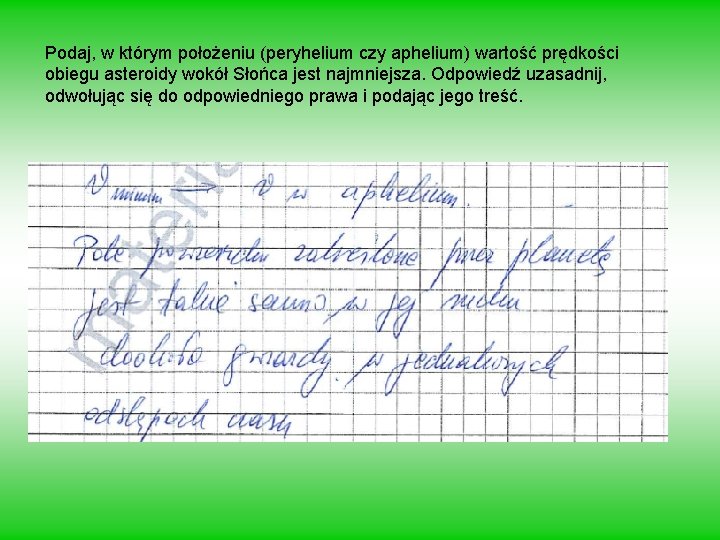 Podaj, w którym położeniu (peryhelium czy aphelium) wartość prędkości
obiegu asteroidy wokół Słońca jest najmniejsza. Odpowiedź uzasadnij,
odwołując się do odpowiedniego prawa i podając jego treść.
V minim → V w aphelium.
Pole powierzchni zakreślone przez planetę
jest takie samo, w jej ruchu
dookoła gwiazdy, w jednakowych
odstępach czasu